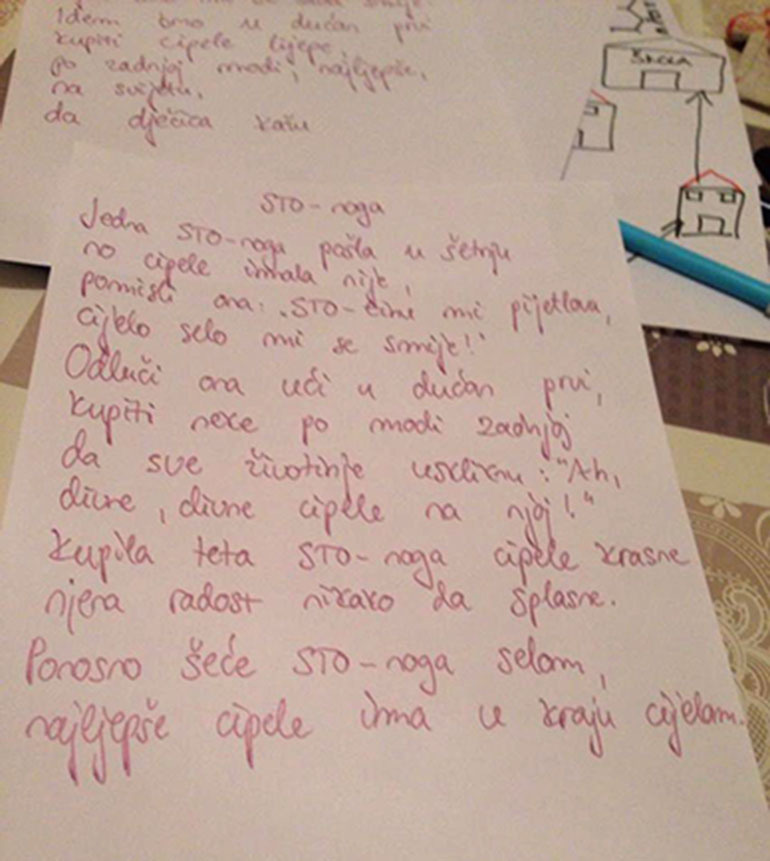 Idem brzo u dućan prvi
kupiti cipele lijepe,
po zadnjoj modi, najljepše,
na svijetu,
da dječica kažu
ŠKOLA
STO-noga
Jedna STO-noga pošla u šetnju
no cipele imala nije,
pomisli ona: "STO-čine mi pijetlova,
cijelo selo mi se smije!"
Odluči ona ući u dućan prvi,
kupiti neke po modi zadnjoj
da sve životinje uskliknu: "Ah,
divne, divne cipele na njoj!"
Kupila teta STO-noga cipele krasne
njena radost nikako da splasne.
Ponosno šeće STO-noga selom,
najljepše cipele ima u kraju cijelom.